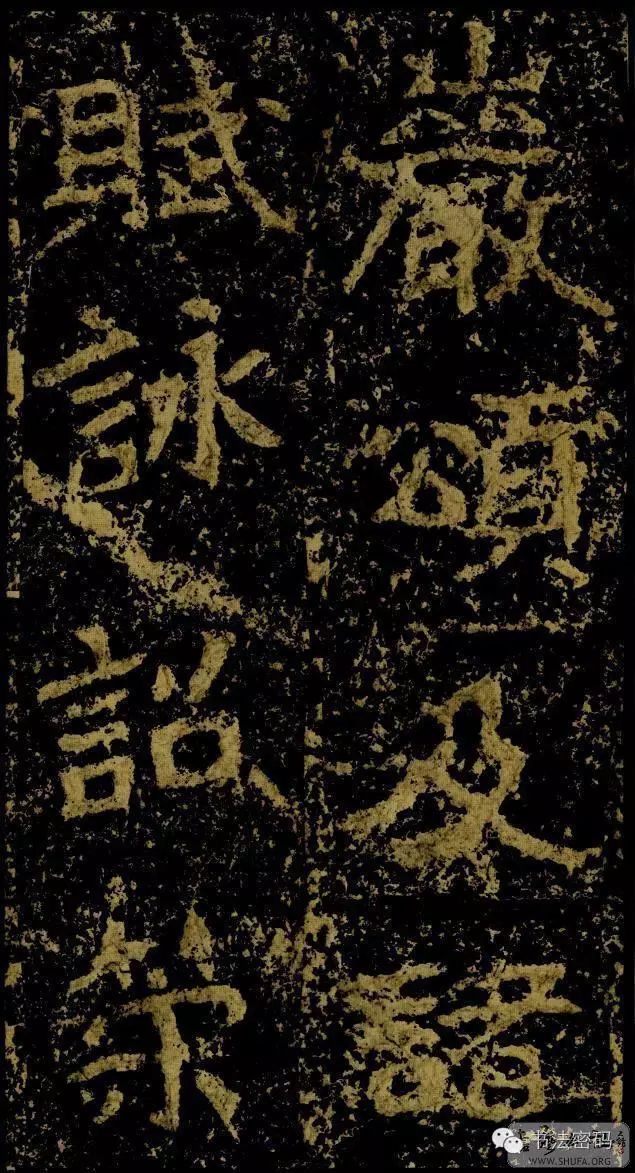 巖頌及諸
賦詠詔策
书法密码
WWW.SHUFA.ORG